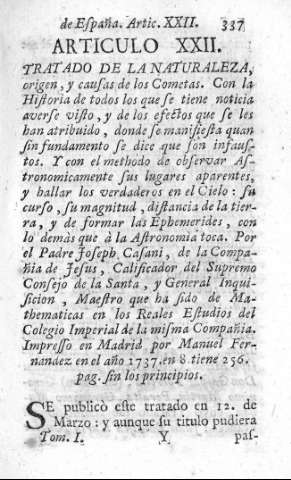 de España. Artic. XXII. 337
ARTICULO XXII.
TRATADO DE LA NATURALEZA,
origen, y causas de los Cometas. Con la
Historia de todos los que se tiene noticia
averse visto, y de los efectos que se les
han atribuido, donde se manifiesta quan
sin fundamento se dice que son infaus-
tos. Y con el methodo de observar As-
tronomicamente sus lugares aparentes,
y hallar los verdaderos en el Cielo: su
curso, su magnitud, distancia de la tier-
ra, y de formar las Ephemerides, con
lo demàs que à la Astronomia toca. Por
el Padre Joseph Casani, de la Compa-
ñia de Jesus, Calificador del Supremo
Consejo de la Santa, y General Inqui-
sicion, Maestro que ha sido de Ma-
thematicas en los Reales Estudios del
Colegio Imperial de la misma Compañia.
Impresso en Madrid por Manuel Fer-
nandez en el año 1737. en 8. tiene 256.
pag. sin los principios.
SE publicò este tratado en 12. de
Marzo: y aunque su titulo pudiera
Tom. I. Y pas-